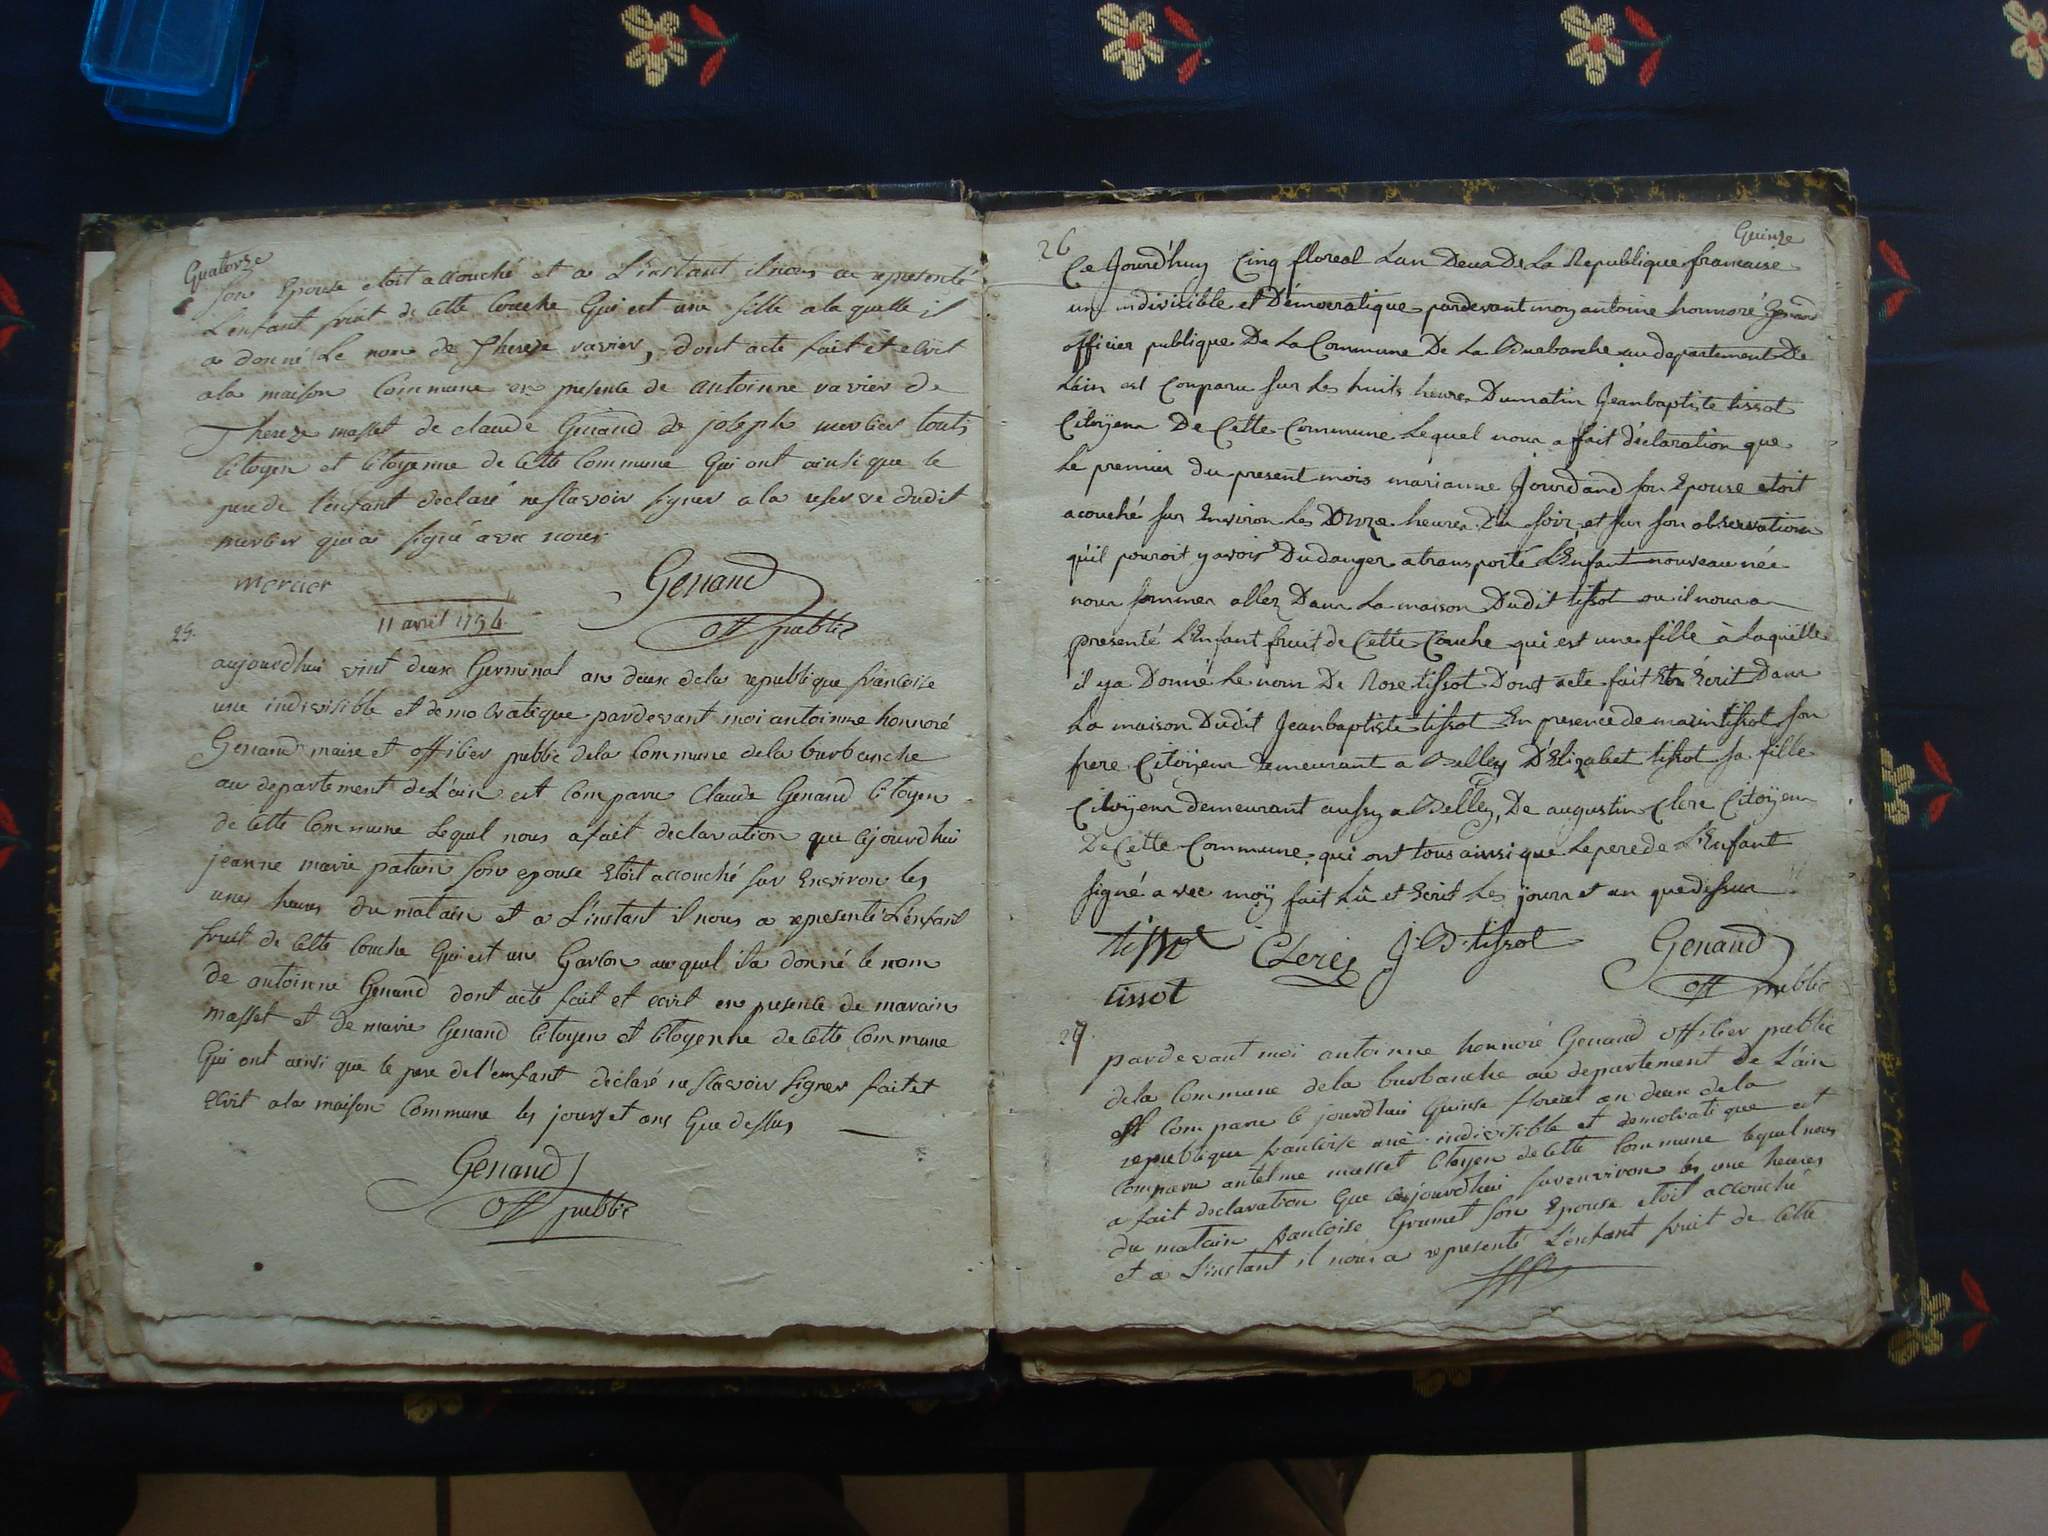 Quatorze
son Epouse etoit accouché et a L'instant il nous a representé
L'enfant fruit de Cette Couche Qui est une fille a la quelle il
a donné Le nom de Thereze ravier, dont acte fait et ecrit
a la maison Commune en presence de antoinne ravier de
Thereze masset de claude Genand de joseph mercier touts
Citoyen et Citoyenne de Cette Commune Qui ont ainsi que le
pere de l'enfant declaré ne scavoir signer a la reserve dudit
mercier qui a signé avec nous
mercier Genand
off public
11 avril 1794
25.
aujourdhui vint deux Germinal an deux de la republique francoise
une indivisible et democratique pardevant moi antoinne honnoré
Genand maire et officier public de la Commune de la burbanche
au departement de L'ain est Comparu Claude Genand Citoyen
de Cette Commune Lequel nous a fait declaration que cejourdhui
jeanne marie patain son epouse Etoit accouché sur Environ les
unes heures du matain et a L'instant il nous a representé L'enfant
fruit de Cette Couche Qui est un Garcon au quel il a donné le nom
de antoinne Genand dont acte fait et ecrit en presence de marain
masset et de marie Genand Citoyen et Citoyenne de Cette Commune
Qui ont ainsi que le pere de l'enfant declaré ne scavoir signer fait et
Ecrit a la maison Commune les jours et ans Que dessus
Genand
off public
Quinze
26
Ce Jourd'huy Cinq floreal Lan Deux De La Republique francaise
un indivisible et Démocratique pardevant moy antoine honnoré Genand
officier publique De La Commune De La Burbanche au departement De
L'ain est Comparu sur Les huits heures Du matin Jeanbaptiste tissot
Citoÿen De Cette Commune Lequel nous a fait déclaration que
Le premier du present mois marianne Jourdand son Epouse etoit
acouché sur Environ Les Onze heures Du soir et sur son observation
qu'il pouroit y avoir Du danger a transporté L'Enfant nouveau née
nous sommes allez Dans La maison Dudit tissot ou il nous a
presenté L'Enfant fruit de Cette Couche qui est une fille à Laquelle
il y a Donné Le nom De Rose tissot Dont acte fait Et Ecrit Dans
La maison Dudit Jeanbaptiste tissot En presence de marin tissot son
frere Citoÿen demeurant a Belley D'Elizabet tissot sa fille
Citoÿenn demeurant aussy a Belley, De augustin Clere Citoÿen
De Cette Commune qui ont tous ainsi que Le pere de L'Enfant
signé avec moÿ fait Lû et Ecrit Les jours et an que dessus
tissot Clerc J. B. tissot Genand
tissot off public
27.
pardevant moi antoinne honnoré Genand officier public
de la Commune de la burbanche au departement de L'ain
est Comparu Ce jourdhui Quinse floreal an deux de la
republique francoise une indivisible et democratique est
Comparu antelme masset Citoyen de Cette Commune lequel nous
a fait declaration Que cejourdhui sur environ les une heures
du matain francoise Grumet son Epouse etoit accouché
et a L'instant il nous a representé L'enfant fruit de Cette